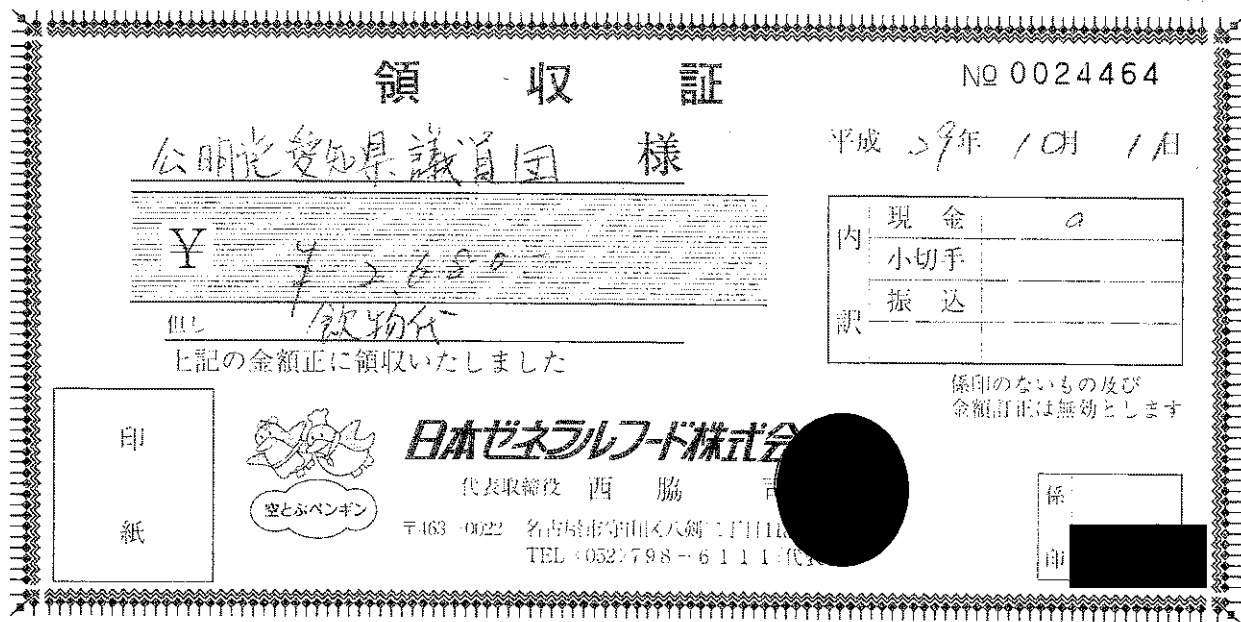 領収証
№ 0024464
公明党愛知県議員団 様
平成 29年 10月 1日
¥ ¥2680-
但し 飲物代
上記の金額正に領収いたしました
内訳
現金
小切手
振込
係印のないもの及び
金額訂正は無効とします
印紙
空とぶペンギン
日本ゼネラルフード株式会
代表取締役 西脇
〒463-0022 名古屋市守山区八剣二丁目
TEL (052) 798-6111 (代
係印